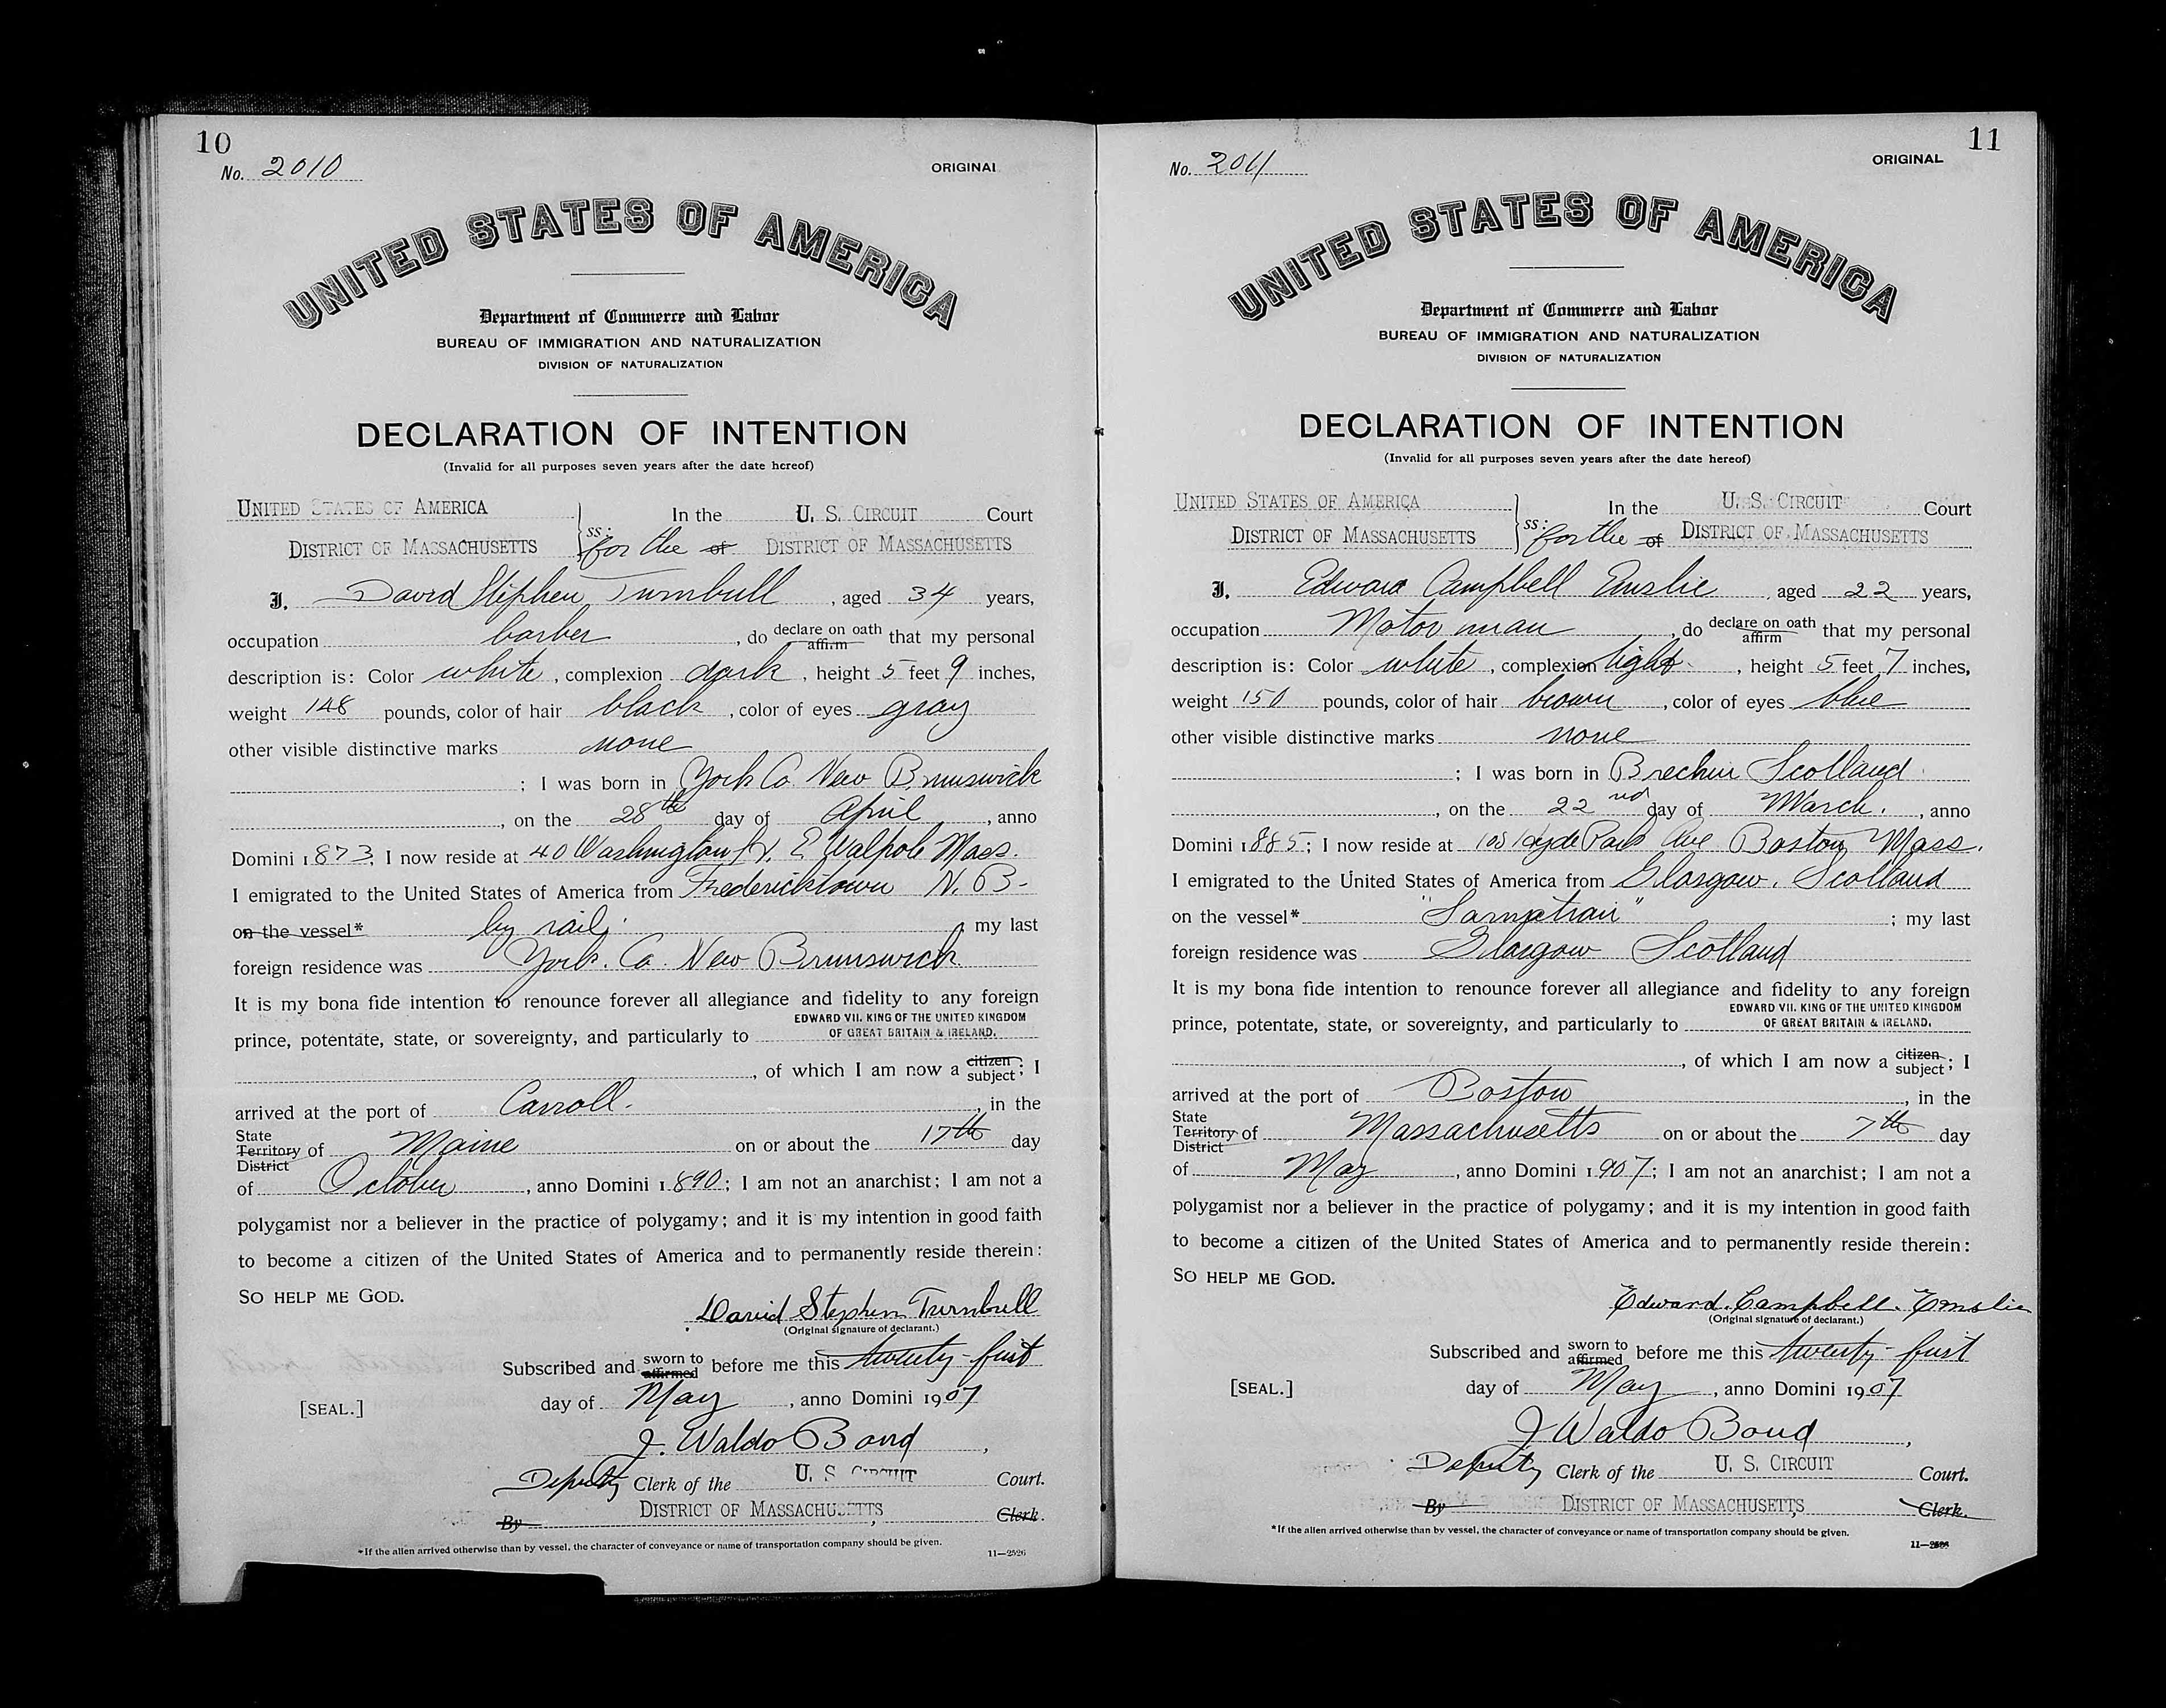 10
No. 2010
ORIGINAL
UNITED STATES OF AMERICA
Department of Commerce and Labor
BUREAU OF IMMIGRATION AND NATURALIZATION
DIVISION OF NATURALIZATION
DECLARATION OF INTENTION
(Invalid for all purposes seven years after the date hereof)
UNITED STATES OF AMERICA
In the U. S. CIRCUIT Court
DISTRICT OF MASSACHUSETTS ss: for the of DISTRICT OF MASSACHUSETTS
I, David Stephen Turnbull, aged 34 years,
occupation barber, do declare on oath affirm that my personal
description is: Color white, complexion dark, height 5 feet 9 inches,
weight 148 pounds, color of hair black, color of eyes gray
other visible distinctive marks none
; I was born in York Co. New Brunswick
, on the 28th day of April, anno
Domini 1873; I now reside at 40 Washington St. E Walpole Mass.
I emigrated to the United States of America from Fredericktown N. B-
on the vessel* by rail; my last
foreign residence was York. Co. New Brunswick
It is my bona fide intention to renounce forever all allegiance and fidelity to any foreign
EDWARD VII. KING OF THE UNITED KINGDOM
prince, potentate, state, or sovereignty, and particularly to OF GREAT BRITAIN & IRELAND.
, of which I am now a citizen subject; I
arrived at the port of Carroll., in the
State Territory District of Maine on or about the 17th day
of October, anno Domini 1890; I am not an anarchist; I am not a
polygamist nor a believer in the practice of polygamy; and it is my intention in good faith
to become a citizen of the United States of America and to permanently reside therein:
SO HELP ME GOD.
David Stephen Turnbull
(Original signature of declarant.)
Subscribed and sworn to affirmed before me this twenty-first
[SEAL.] day of May, anno Domini 1907
J. Waldo Bond,
Deputy Clerk of the U. S. CIRCUIT Court.
By DISTRICT OF MASSACHUSETTS, Clerk.
*If the alien arrived otherwise than by vessel, the character of conveyance or name of transportation company should be given.
11—2526
11
No. 2011
ORIGINAL
UNITED STATES OF AMERICA
Department of Commerce and Labor
BUREAU OF IMMIGRATION AND NATURALIZATION
DIVISION OF NATURALIZATION
DECLARATION OF INTENTION
(Invalid for all purposes seven years after the date hereof)
UNITED STATES OF AMERICA
In the U. S. CIRCUIT Court
DISTRICT OF MASSACHUSETTS ss: for the of DISTRICT OF MASSACHUSETTS
I, Edward Campbell Emslie, aged 22 years,
occupation Motor man, do declare on oath affirm that my personal
description is: Color white, complexion light, height 5 feet 7 inches,
weight 150 pounds, color of hair brown, color of eyes blue
other visible distinctive marks none
; I was born in Brechin Scotland
, on the 22nd day of March., anno
Domini 1885; I now reside at Hyde Park Ave Boston Mass.
I emigrated to the United States of America from Glasgow, Scotland
on the vessel* "Sarmatian"; my last
foreign residence was Glasgow Scotland
It is my bona fide intention to renounce forever all allegiance and fidelity to any foreign
EDWARD VII. KING OF THE UNITED KINGDOM
prince, potentate, state, or sovereignty, and particularly to OF GREAT BRITAIN & IRELAND.
, of which I am now a citizen subject; I
arrived at the port of Boston, in the
State Territory District of Massachusetts on or about the 7th day
of May, anno Domini 1907; I am not an anarchist; I am not a
polygamist nor a believer in the practice of polygamy; and it is my intention in good faith
to become a citizen of the United States of America and to permanently reside therein:
SO HELP ME GOD.
Edward. Campbell. Emslie
(Original signature of declarant.)
Subscribed and sworn to affirmed before me this twenty-first
[SEAL.] day of May, anno Domini 1907
J Waldo Bond,
Deputy Clerk of the U. S. CIRCUIT Court.
By DISTRICT OF MASSACHUSETTS, Clerk.
*If the alien arrived otherwise than by vessel, the character of conveyance or name of transportation company should be given.
11—2526